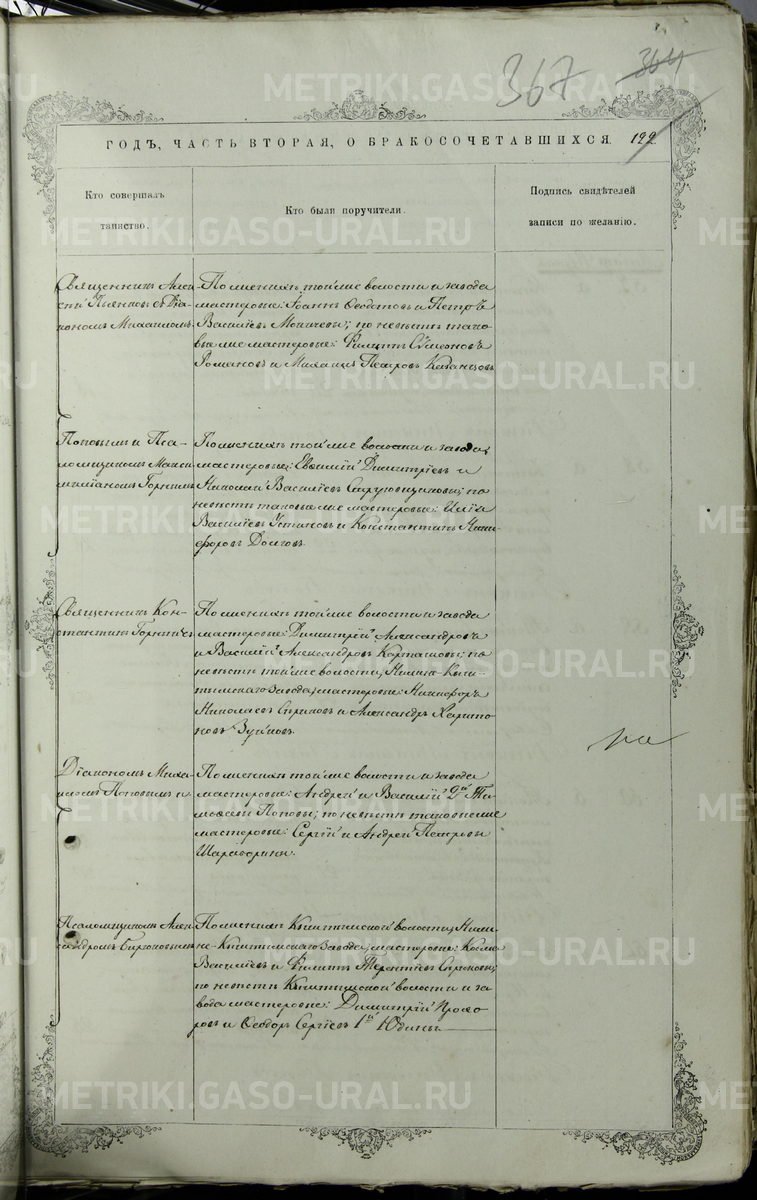 367
364
ГОДЪ, ЧАСТЬ ВТОРАЯ, О БРАКОСОЧЕТАВШИХСЯ.
199
Кто совершалъ
таинство.
Кто были поручители.
Подпись свидѣтелей
записи по желанію.
Священникъ Алек
Пьянков съ Діа-
кономъ Михаиломъ
По женихѣ той же волости и завода
мастеровые: Іоаннъ Ѳеодотовъ и Петръ
Васильевъ по невѣстѣ тако-
вые же мастеровые: Филиппъ Сѵмеоновъ
Романовъ и Михаилъ Петровъ Казанцовъ
Поповымъ и Пса-
ломщикомъ Макси
миліаномъ Горнымъ
По женихѣ той же волости и завода
мастеровые: Евѳимій Димитріевъ и
Николай Васильевъ по
невѣстѣ таковые же мастеровые: Илія
Васильевъ Устиновъ и Константинъ Ники-
форовъ Долговъ
Священникъ Кон-
стантинъ
По женихѣ той же волости и завода
мастеровые: Димитрій Александровъ
и Василій Александровъ Карташовы; по
невѣстѣ той же волости, Нижне-Кыш-
тымскаго завода, мастеровые: Никифоръ
Николаевъ и Александръ Харито
новъ Зуйковъ
Діакономъ Миха-
иломъ Поповымъ и
По женихѣ той же волости и завода
мастеровые: Андрей и Василій 2й Ти-
моѳеевы Поповы; по невѣстѣ таковые же
мастеровые: Сергій и Андрей Петровы
Псаломщикомъ Алек
сандромъ Бирюковымъ
По женихѣ Кыштымской волости, Ниж-
не-Кыштымскаго завода, мастеровые: Козма
Васильевъ и Филиппъ Терентіевъ
по невѣстѣ Кыштымской волости и за
вода мастеровые: Димитрій Прохо
ровъ и Ѳеодоръ Сергіевъ 1й Юдины
METRIKI.GASO-URAL.RU